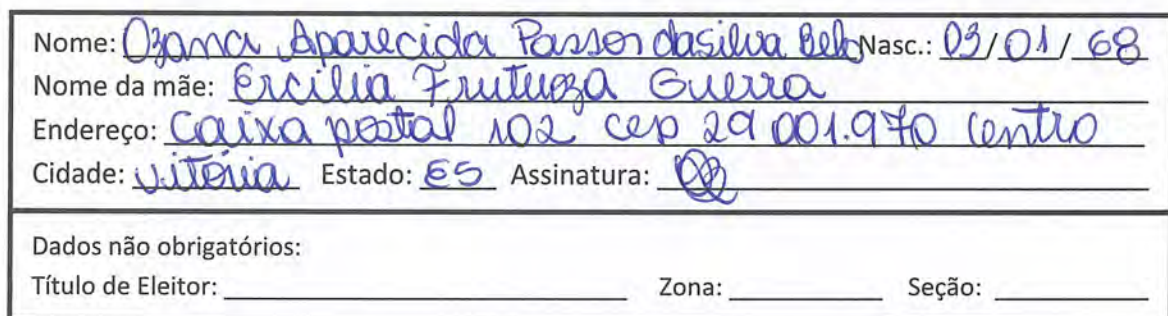 Nome: Ozana Aparecida Passos da silva Belo Nasc.: 03/01/68
Nome da mãe: Ercilia Frutuoza Guerra
Endereço: Caixa postal 102 cep 29 001.970 Centro
Cidade: vitória Estado: ES Assinatura:
Dados não obrigatórios:
Título de Eleitor: Zona: Seção: